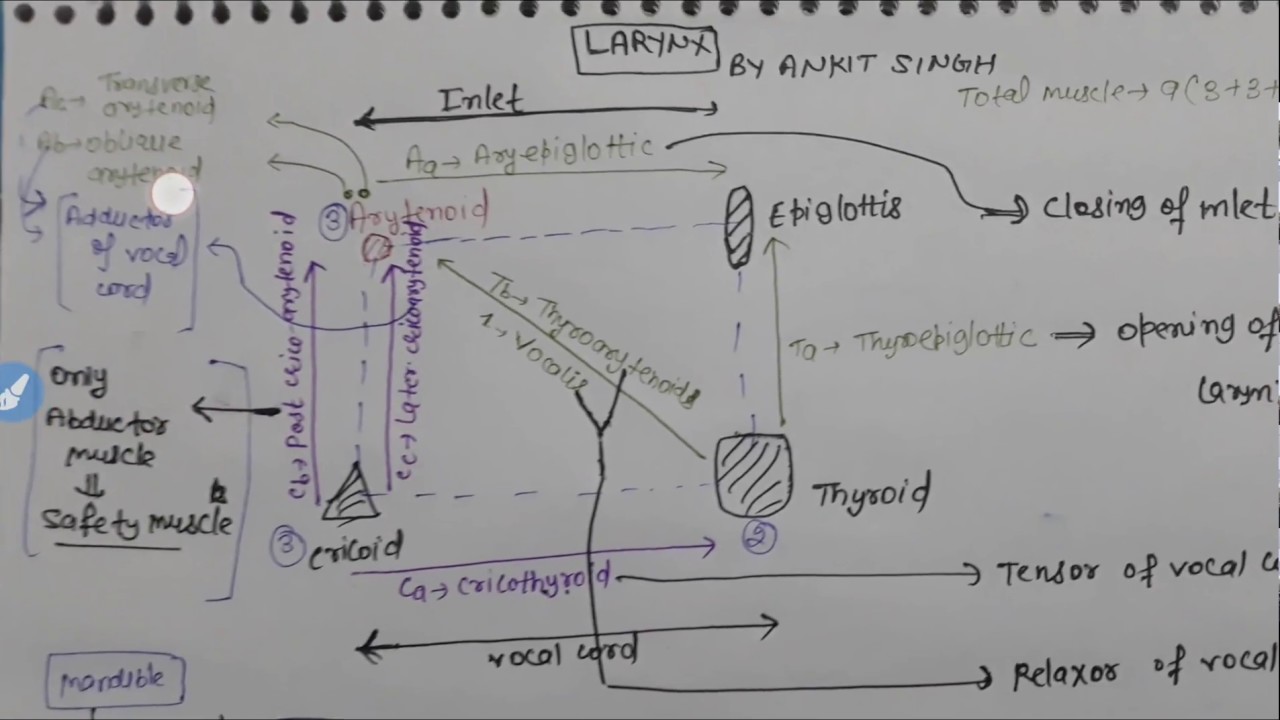 LARYNX
BY ANKIT SINGH
Total muscle→ 9(3+3+
Ac→ Transverse
arytenoid
Ab→oblique
arytenoid
Inlet
Aa→ Aryepiglottic
Adductor
of vocal
cord
③Arytenoid
Epiglottis
closing of inlet
Cb→ Post crico-arytenoid
Cc→ Later. cricoarytenoid
Tb→ Thyroarytenoids
1→ Vocalis
Ta→ Thyroepiglottic ⇒ opening of
laryn
Only
Abductor
muscle
⇓
Safety muscle
③ cricoid
Thyroid
②
Ca→ cricothyroid
Tensor of vocal c
vocal cord
Relaxor of vocal
mandible